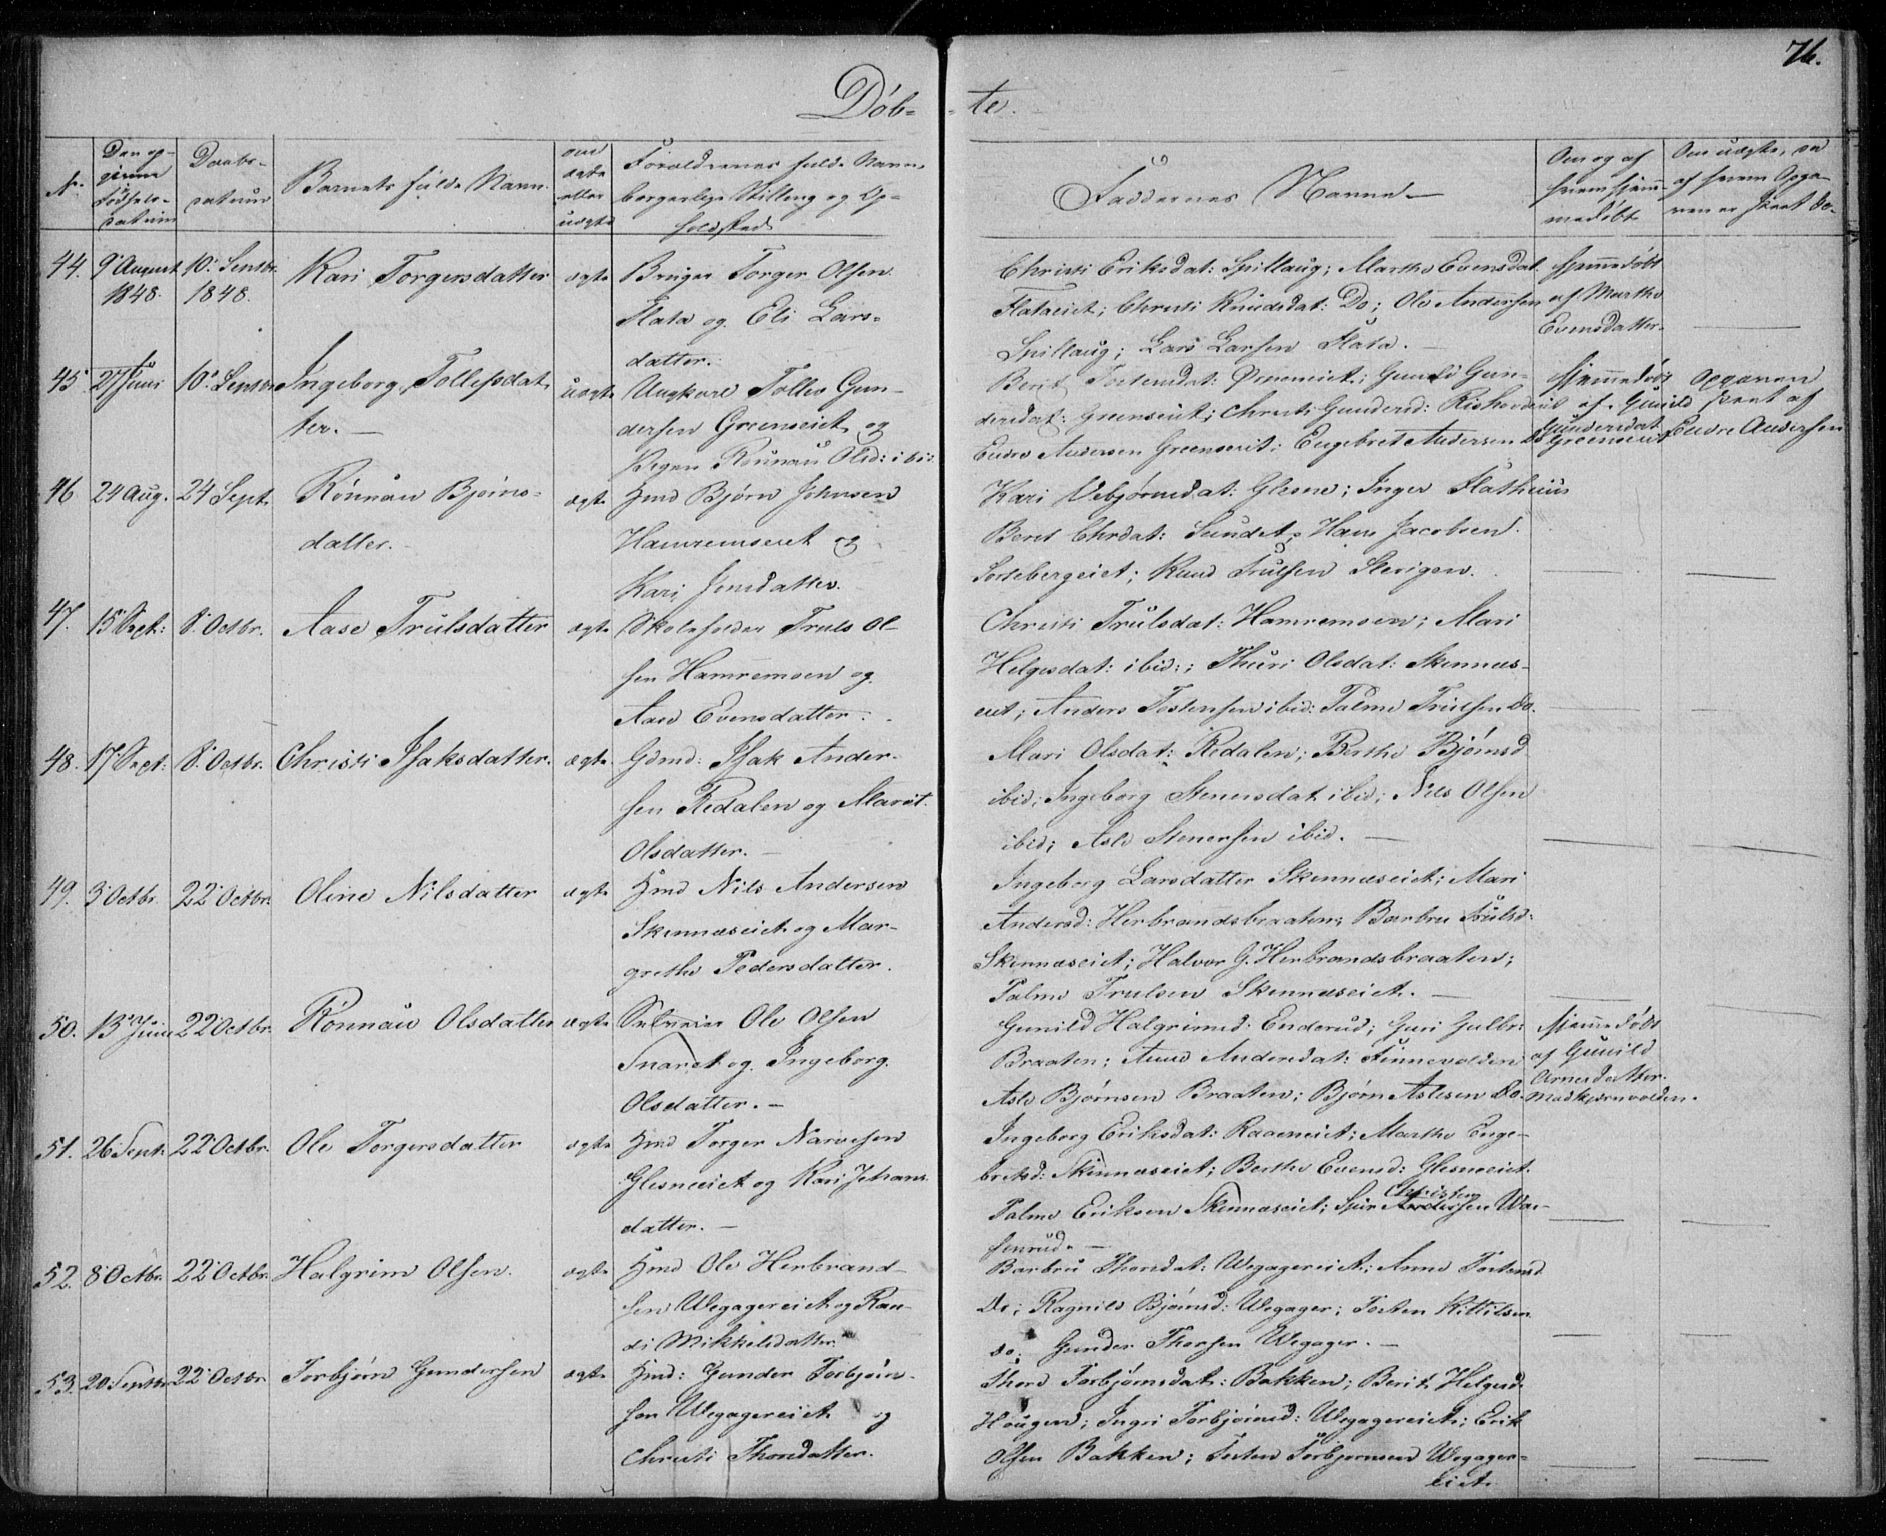 76.
Döb-
-te.
No
Den op-
givne
Fødsels-
datum
Daabs-
datum
Barnets fulde Navn.
om
ægte
eller
uægte
Forældrenes fulde Navn,
borgerlige Stilling og Op-
holdsted
Faddernes Navne
Om og af
hvem hjem-
medøbt
Om uægte, da
af hvem Opga-
ven er skeet &c.
44.
9 August
1848.
10. Septbr.
1848.
Kari Torgersdatter
ægte
Bruger Torger Olsen
Flata og Eli Lars-
datter.
Christi Eriksdat: Spillaug; Marthe Evensdat.
Flataeiet; Christi Knudsdat: Do; Ole Andersen
Spillaug; Lars Larsen Flata.
Hjemmedøbt
af Marthe
Evensdatter.
45
27 Juni
10. Septbr
Ingeborg Tollefsdat-
ter.
uægte
Ungkarl Tollev Gun-
dersen Greenseiet og
Pigen Rönnau Olsd: ibi:
Berit Tostensdat: Gunild Gun-
dersdat: Greenseiet; Christi Gundersd:
Endre Andersen Greenseiet; Engebret Andersen Do
Hjemmedøbt
af Gunild
Gundersdat
Greenseiet
Opgaven
skeet af
Endre Andersen
46
24 Aug.
24 Sept.
Rönnau Bjørns-
datter.
ægte
Hmd Bjørn Johnsen
Hamremseiet og
Kari Jensdatter.
Kari Vebjørnsdat: Glesne; Inger Flathuus
Berit Chrdat: Sundet; Hans Jacobsen
Sortebergeiet; Knud Trulsen Sterigen.
47.
15 Sept:
8. Octbr.
Aase Trulsdatter
ægte
Skoleholder Truls Ol-
sen Hamremoen og
Aase Evensdatter.
Christi Trulsdat: Hamremoen; Mari
Helgesdat: ibid:; Thuri Olsdat: Skinnæs-
eiet; Anders Tostensen ibid: Palme Trulsen Do.
48.
17 Sept:
8. Octbr.
Christi Isaksdatter.
ægte
Gdmd: Isak Ander-
sen Redalen og Marit
Olsdatter.
Mari Olsdat: Redalen; Berthe Bjørnsd
ibid; Ingeborg Stenersdat ibid; Nils Olsen
ibid; Asle Stenersen ibid.
49.
3 Octbr
22 Octbr.
Oline Nilsdatter
ægte
Hmd Nils Andersen
Skinnæseiet og Mar-
grethe Pedersdatter.
Ingeborg Larsdatter Skinnæseiet; Mari
Andersd: Herbrandsbraaten; Barbru Trulsd:
Skinnæseiet; Halvor G. Herbrandsbraaten;
Palme Trulsen Skinnæseiet.
50.
13 Juni
22 Octbr.
Rönnau Olsdatter
ægte
Selveier Ole Olsen
Snaret og Ingeborg
Olsdatter.
Gunild Halgrimsd: Enderud; Guri Gulbr:
Braaten; Anne Andersdat: Finnevolden
Asle Bjørnsen Braaten; Bjørn Aslesen Do.
Hjemmedøbt
af Gunild
Arnesdatter
Madkjernvolden.
51.
26 Sept:
22 Octbr.
Ole Torgersdatter
ægte
Hmd Torger Narvesen
Glesneeiet og Kari Johans-
datter.
Ingeborg Eriksdat: Raaeneiet; Marthe Enge-
bretsd: Skinnæseiet; Berthe Evensd: Glesneeiet.
Christen
Palme Eriksen Skinnæseiet; Andersen Wa-
senrud.
52.
8 Octbr.
22 Octbr.
Halgrim Olsen.
ægte
Hmd Ole Herbrand-
sen Wegagereiet og Ran-
di Mikkelsdatter
Barbru Thorsdat: Wegagereiet; Anne Tostensd
Do; Ragnild Bjørnsd: Wegager; Tosten Kittilsen
do. Gunder Thorsen Wegager.
53.
20 Septbr
22 Octbr.
Torbjørn Gundersen
ægte
Hmd: Gunder Torbjørn-
sen Wegagereiet og
Christi Thorsdatter.
Thord Torbjørnsdat: Bakken; Berit Helgesd.
Haugen; Ingri Torbjørnsd: Wegagereiet; Erik
Olsen Bakken; Tosten Torbjørnsen Wegager-
eiet.